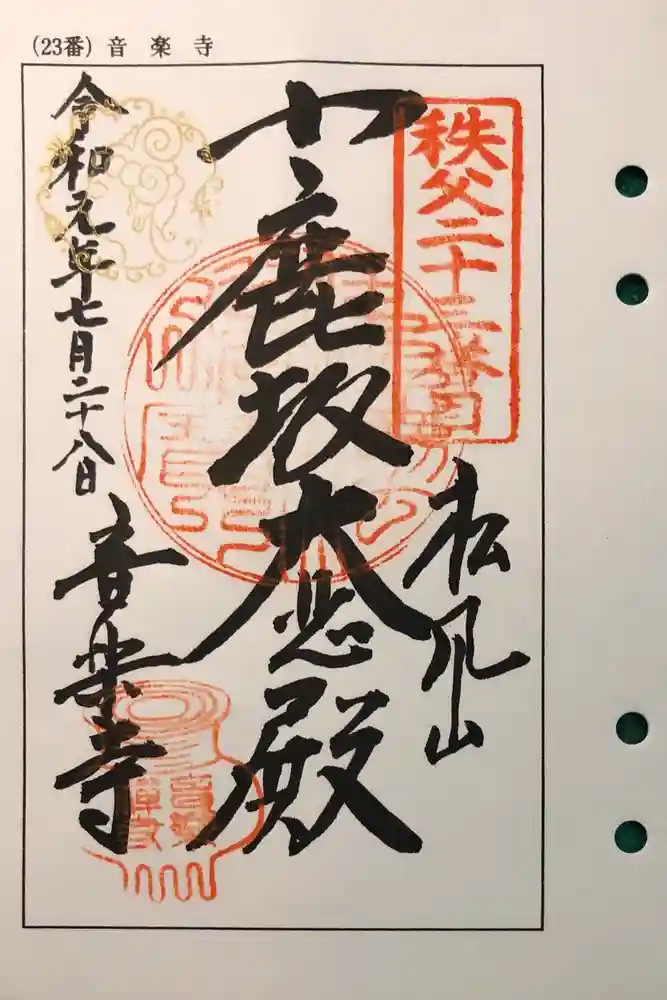 (23番) 音楽寺
秩父二十三番目
松風山
小鹿坂大悲殿
令和元年七月二十八日
音楽寺